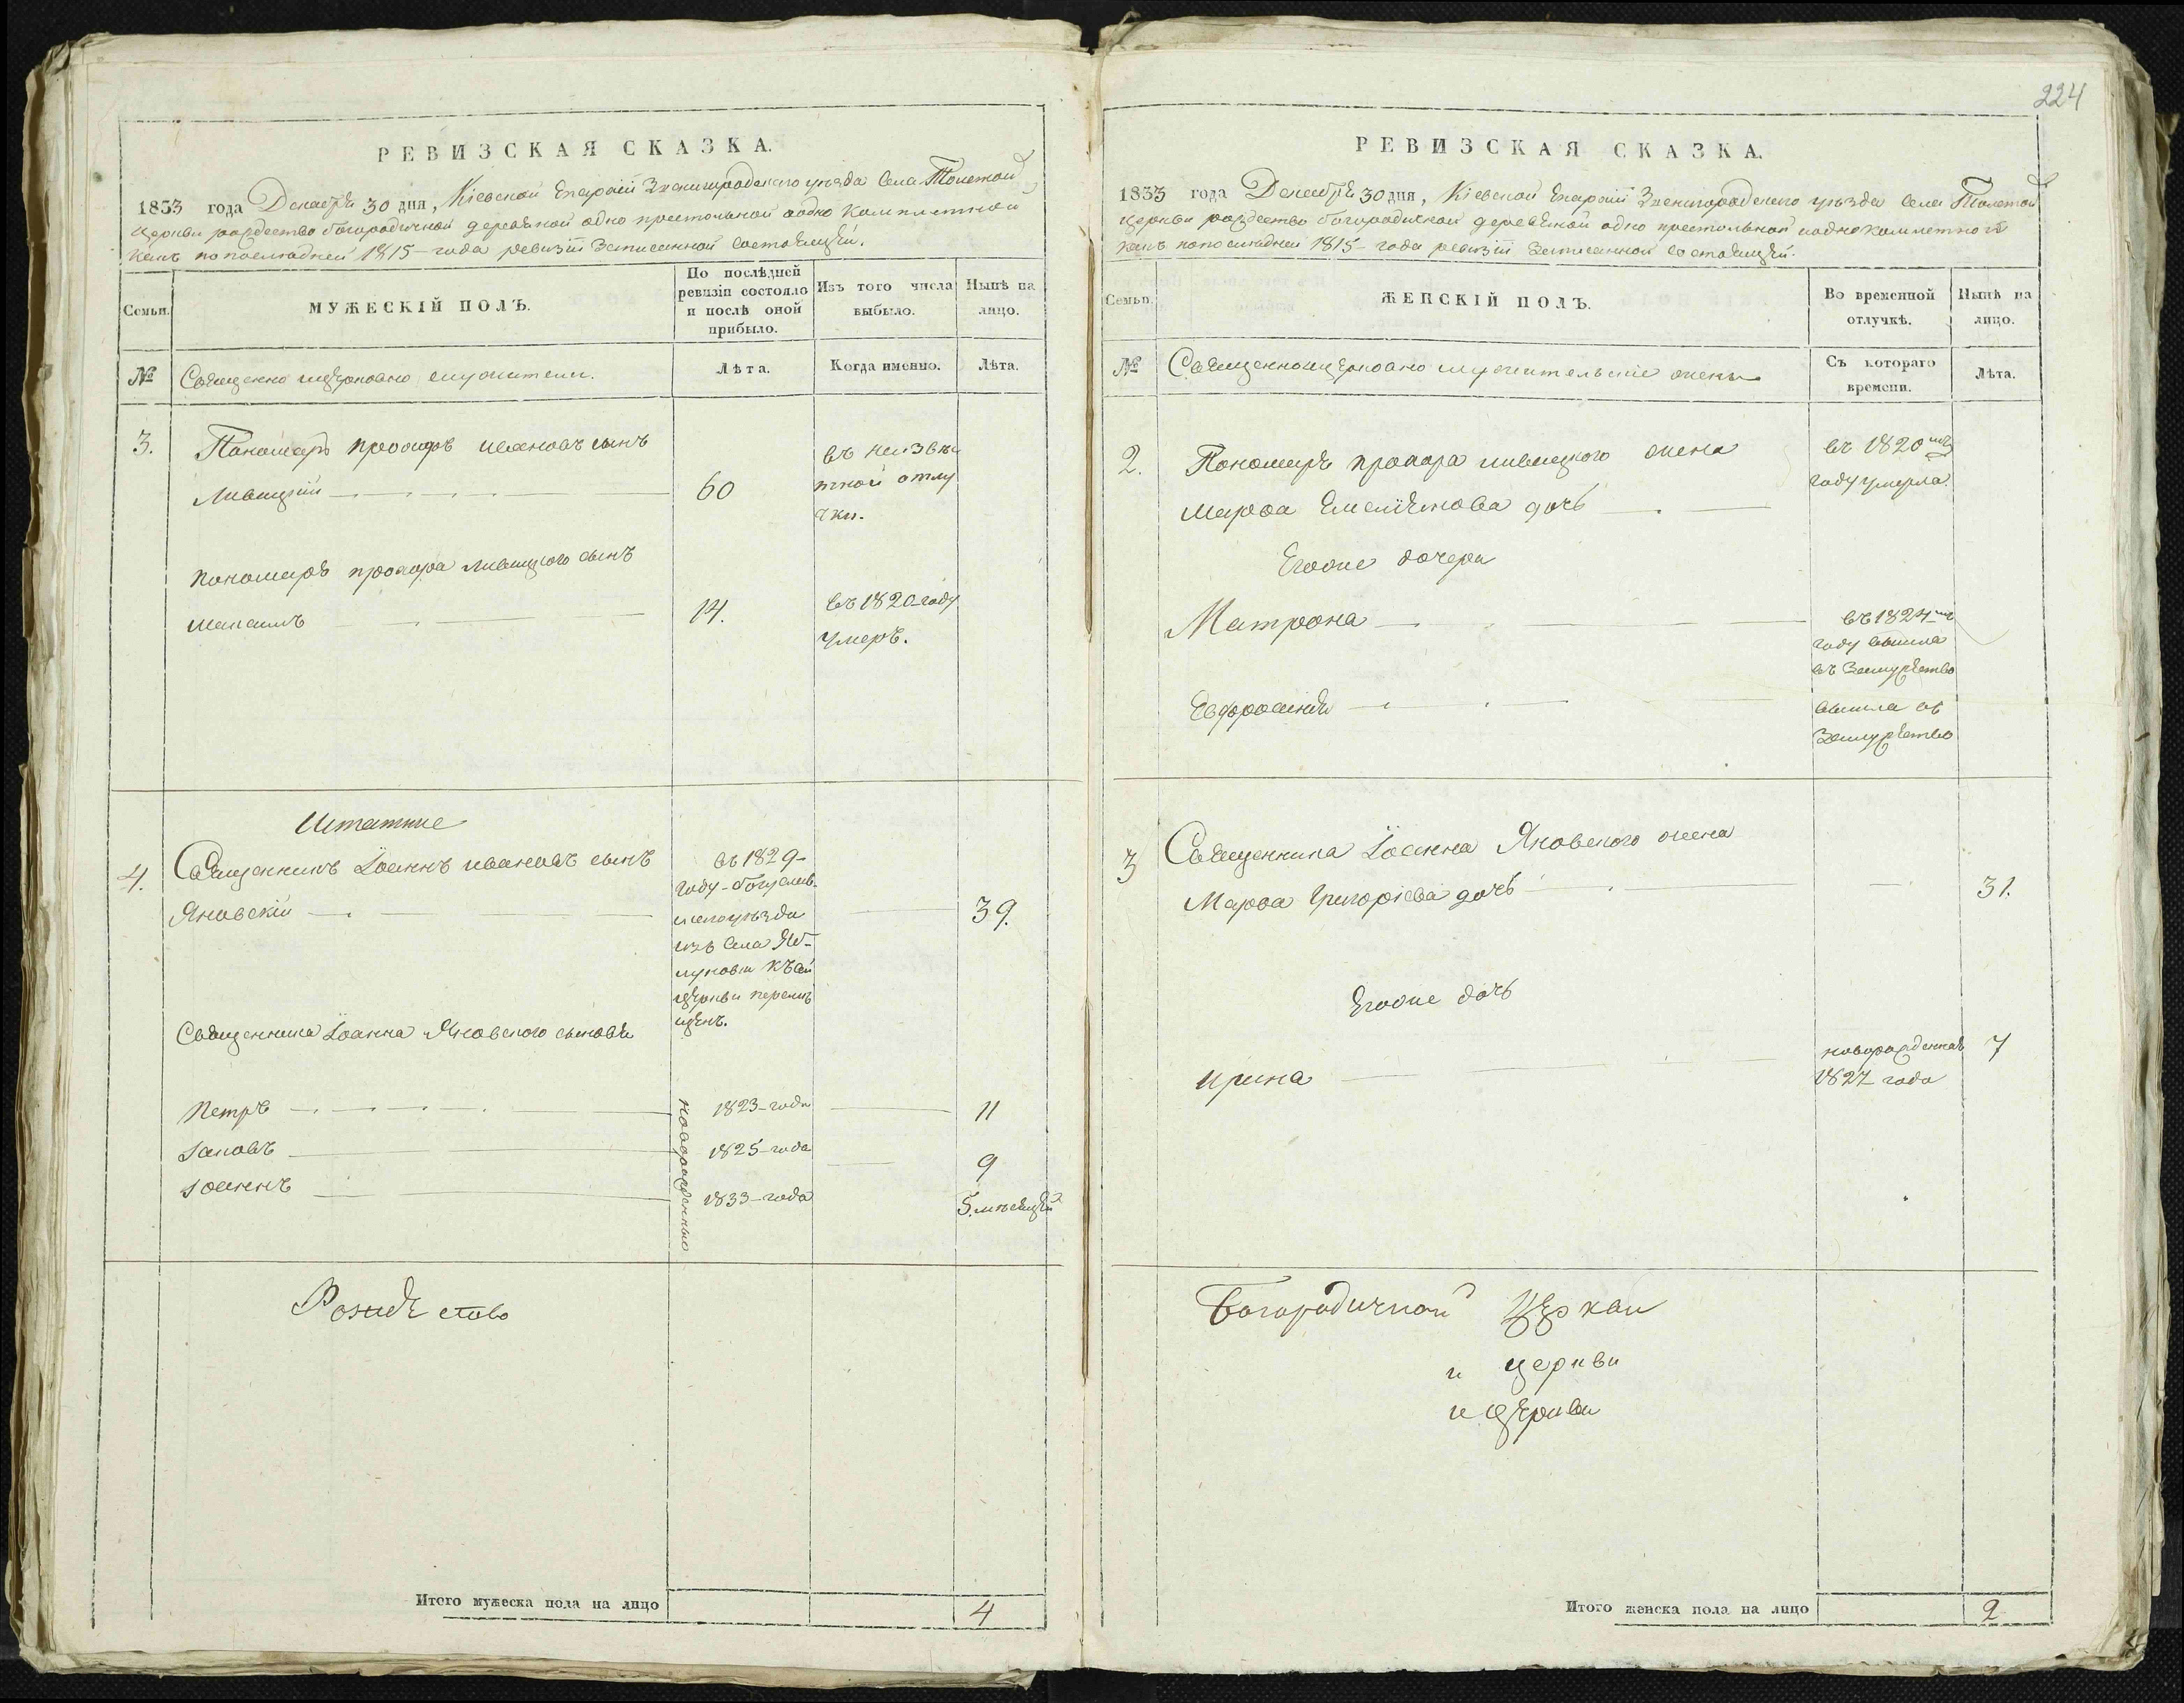 224
РЕВИЗСКАЯ СКАЗКА.
1833 года Декабря 30 дня, Кіевской Епархіи Звенигородского уѣзда Села Толстой
Церкви рождество богородичной деревяной одно престольной иодно комплетной
какъ попослѣдней 1815-года ревизіи Записанной Состоящей.
Семьи.
МУЖЕСКІЙ ПОЛЪ.
По послѣдней
ревизіи состояло
и послѣ оной
прибыло.
Изъ того числа
выбыло.
Нынѣ на
лицо.
№
Священно ицерковно служители.
Лѣта.
Когда именно.
Лѣта.
3.
Пономарь прокофъ ивановъ сынъ
Ливицкій
60
въ неизвѣ
тной отлу
чки.
пономаря прокофа ливицкого сынъ
максимъ
14.
въ 1820 году
умеръ.
Штатные
4.
Священникъ Іоаннъ ивановъ сынъ
Яновскій
въ 1829-
году-богуслав-
ского уѣзда
изъ села Яб-
луновки къ сей
церкви перемѣ
щенъ.
39.
Священника Іоанна Яновского сыновя
Петръ
1823-года
11
Іаковъ
1825-года
9
Іоаннъ
1833-года
5.мѣсяцей
новорожденные
Рождество
Итого мужеска пола на лицо
4
РЕВИЗСКАЯ СКАЗКА.
1833 года Декабря 30 дня, Кіевской Епархіи Звенигородского уѣзда Села Толстой
Церкви рождество богородичной деревяной одно престольной иодно комплетной
какъ попослѣдней 1815-года ревизіи Записанной Состоящей.
Семьи.
ЖЕНСКІЙ ПОЛЪ.
Во временной
отлучкѣ.
Нынѣ на
лицо.
№
Священноицерковно служительскіе жены
Съ котораго
времени.
Лѣта.
2.
Пономаря прокофа ливицкого жена
Марфа Емеліянова дочь
въ 1820мъ
году умерла.
Егоже дочери
Матрона
въ 1824мъ
году вышла
въ Замужство
Евфросинія
вышла въ
Замужство
3
Священника Іоанна Яновского жена
Марфа Григоріева дочь
31.
Егоже дочь
Ирина
новорожденная
1827 года
7
Богородичной Церкви
и церкви
и церкви
Итого женска пола на лицо
2